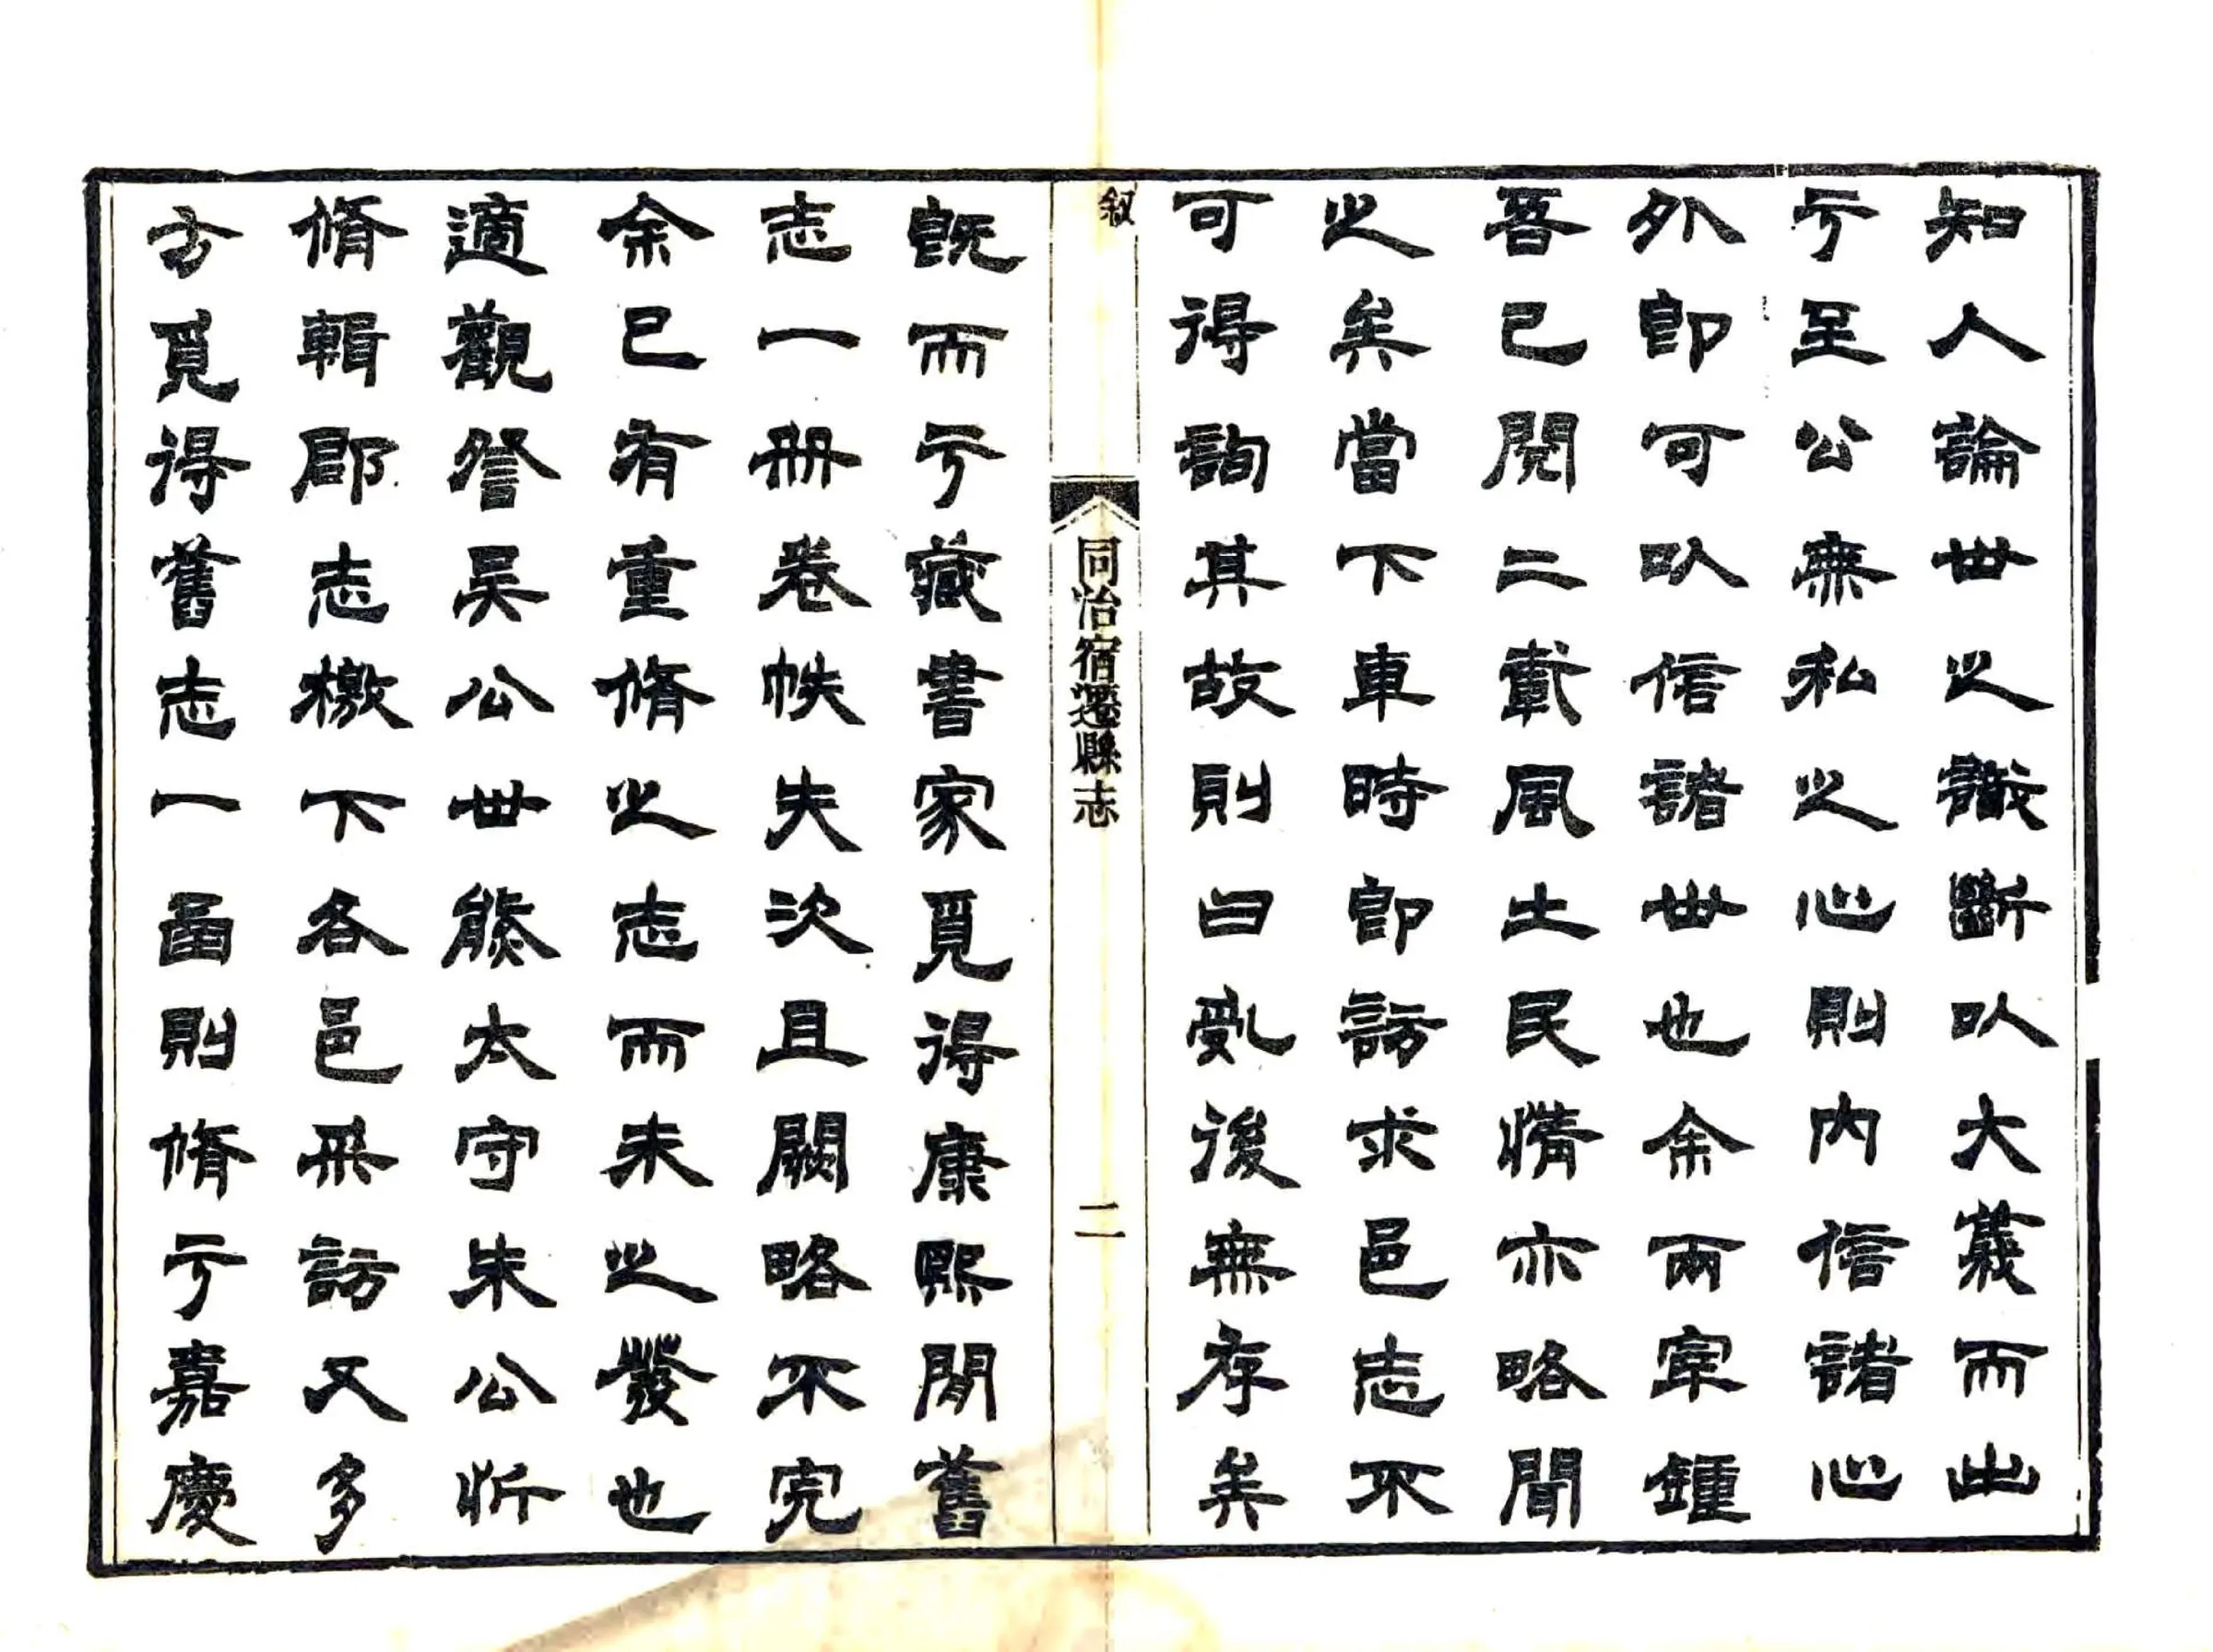 知人論世之識斷以大義而出
于至公無私之心則內信諸心
外卽可以信諸世也余兩宰鍾
吾已閱二載風土民情亦略聞
之矣當下車時卽訪求邑志不
可得詢其故則曰亂後無存矣
敘
同治宿遷縣志
二
旣而于藏書家覓得康熙閒舊
志一冊卷帙失次且闕略不完
余已有重脩之志而未之發也
適觀詧吳公世熊太守朱公忻
脩輯郡志檄下各邑采訪又多
方覓得舊志一函則脩于嘉慶